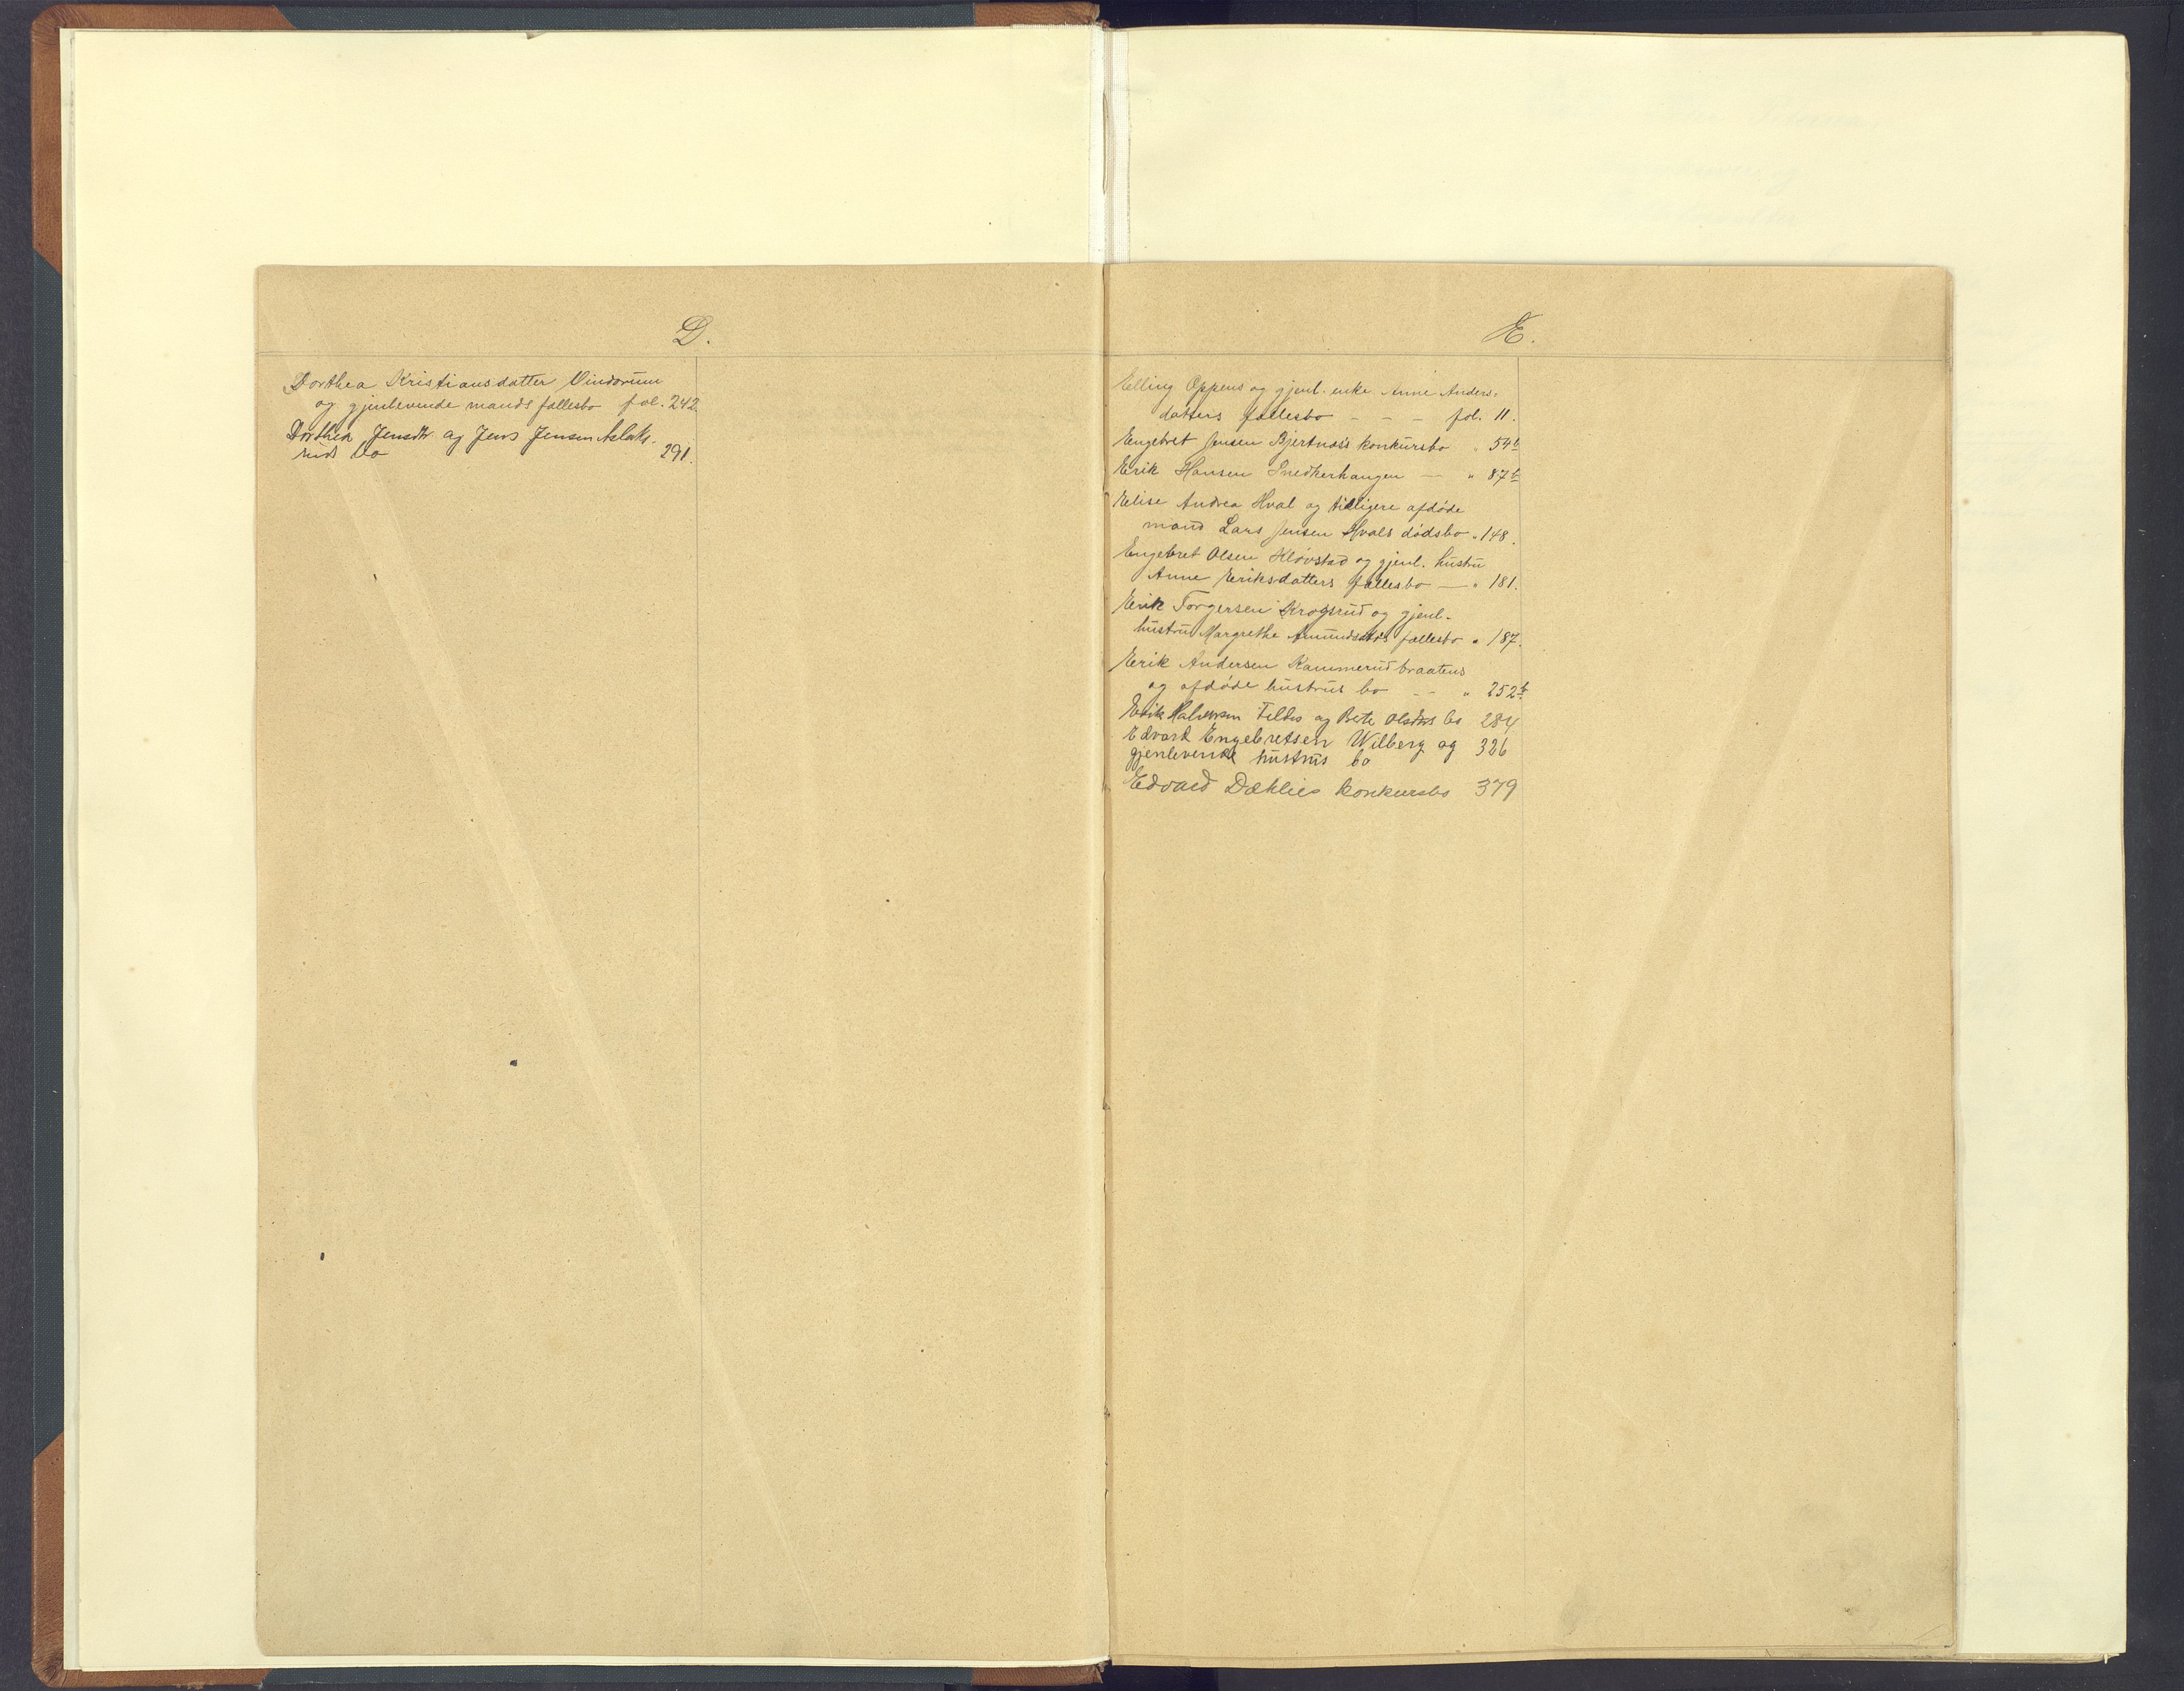 D.
Dorthea Kristiansdatter Vindorum
og gjenlevende mands fællesbo fol. 242.
Dorthea Jensdtr og Jens Jensen Aslaks-
ruds bo 291.
E.
Elling Oppens og gjenl. enke Anne Anders-
datters fællesbo - - - fol. 11.
Engebret Jensen Bjertnæs's konkursbo " 54b
Erik Hansen Snedkerhaugen — " 87b
Elise Andrea Hval og tidligere afdøde
mand Lars Jensen Hvals dødsbo " 148.
Engebret Olsen Kløvstad og gjenl. hustru
Anne Eriksdatters fællesbo — " 181.
Erik Torgersen Krogsrud og gjenl.
hustru Margrethe Amundsdtrs fællesbo " 187.
Erik Andersen Kammerudbraatens
og afdøde hustrus bo - - " 252b
Erik Halvorsen og Bete Olsdtrs bo 284
Edvard Engebretsen Wilberg og 326
gjenlevende hustrus bo
Edvard Dæhlies konkursbo 379